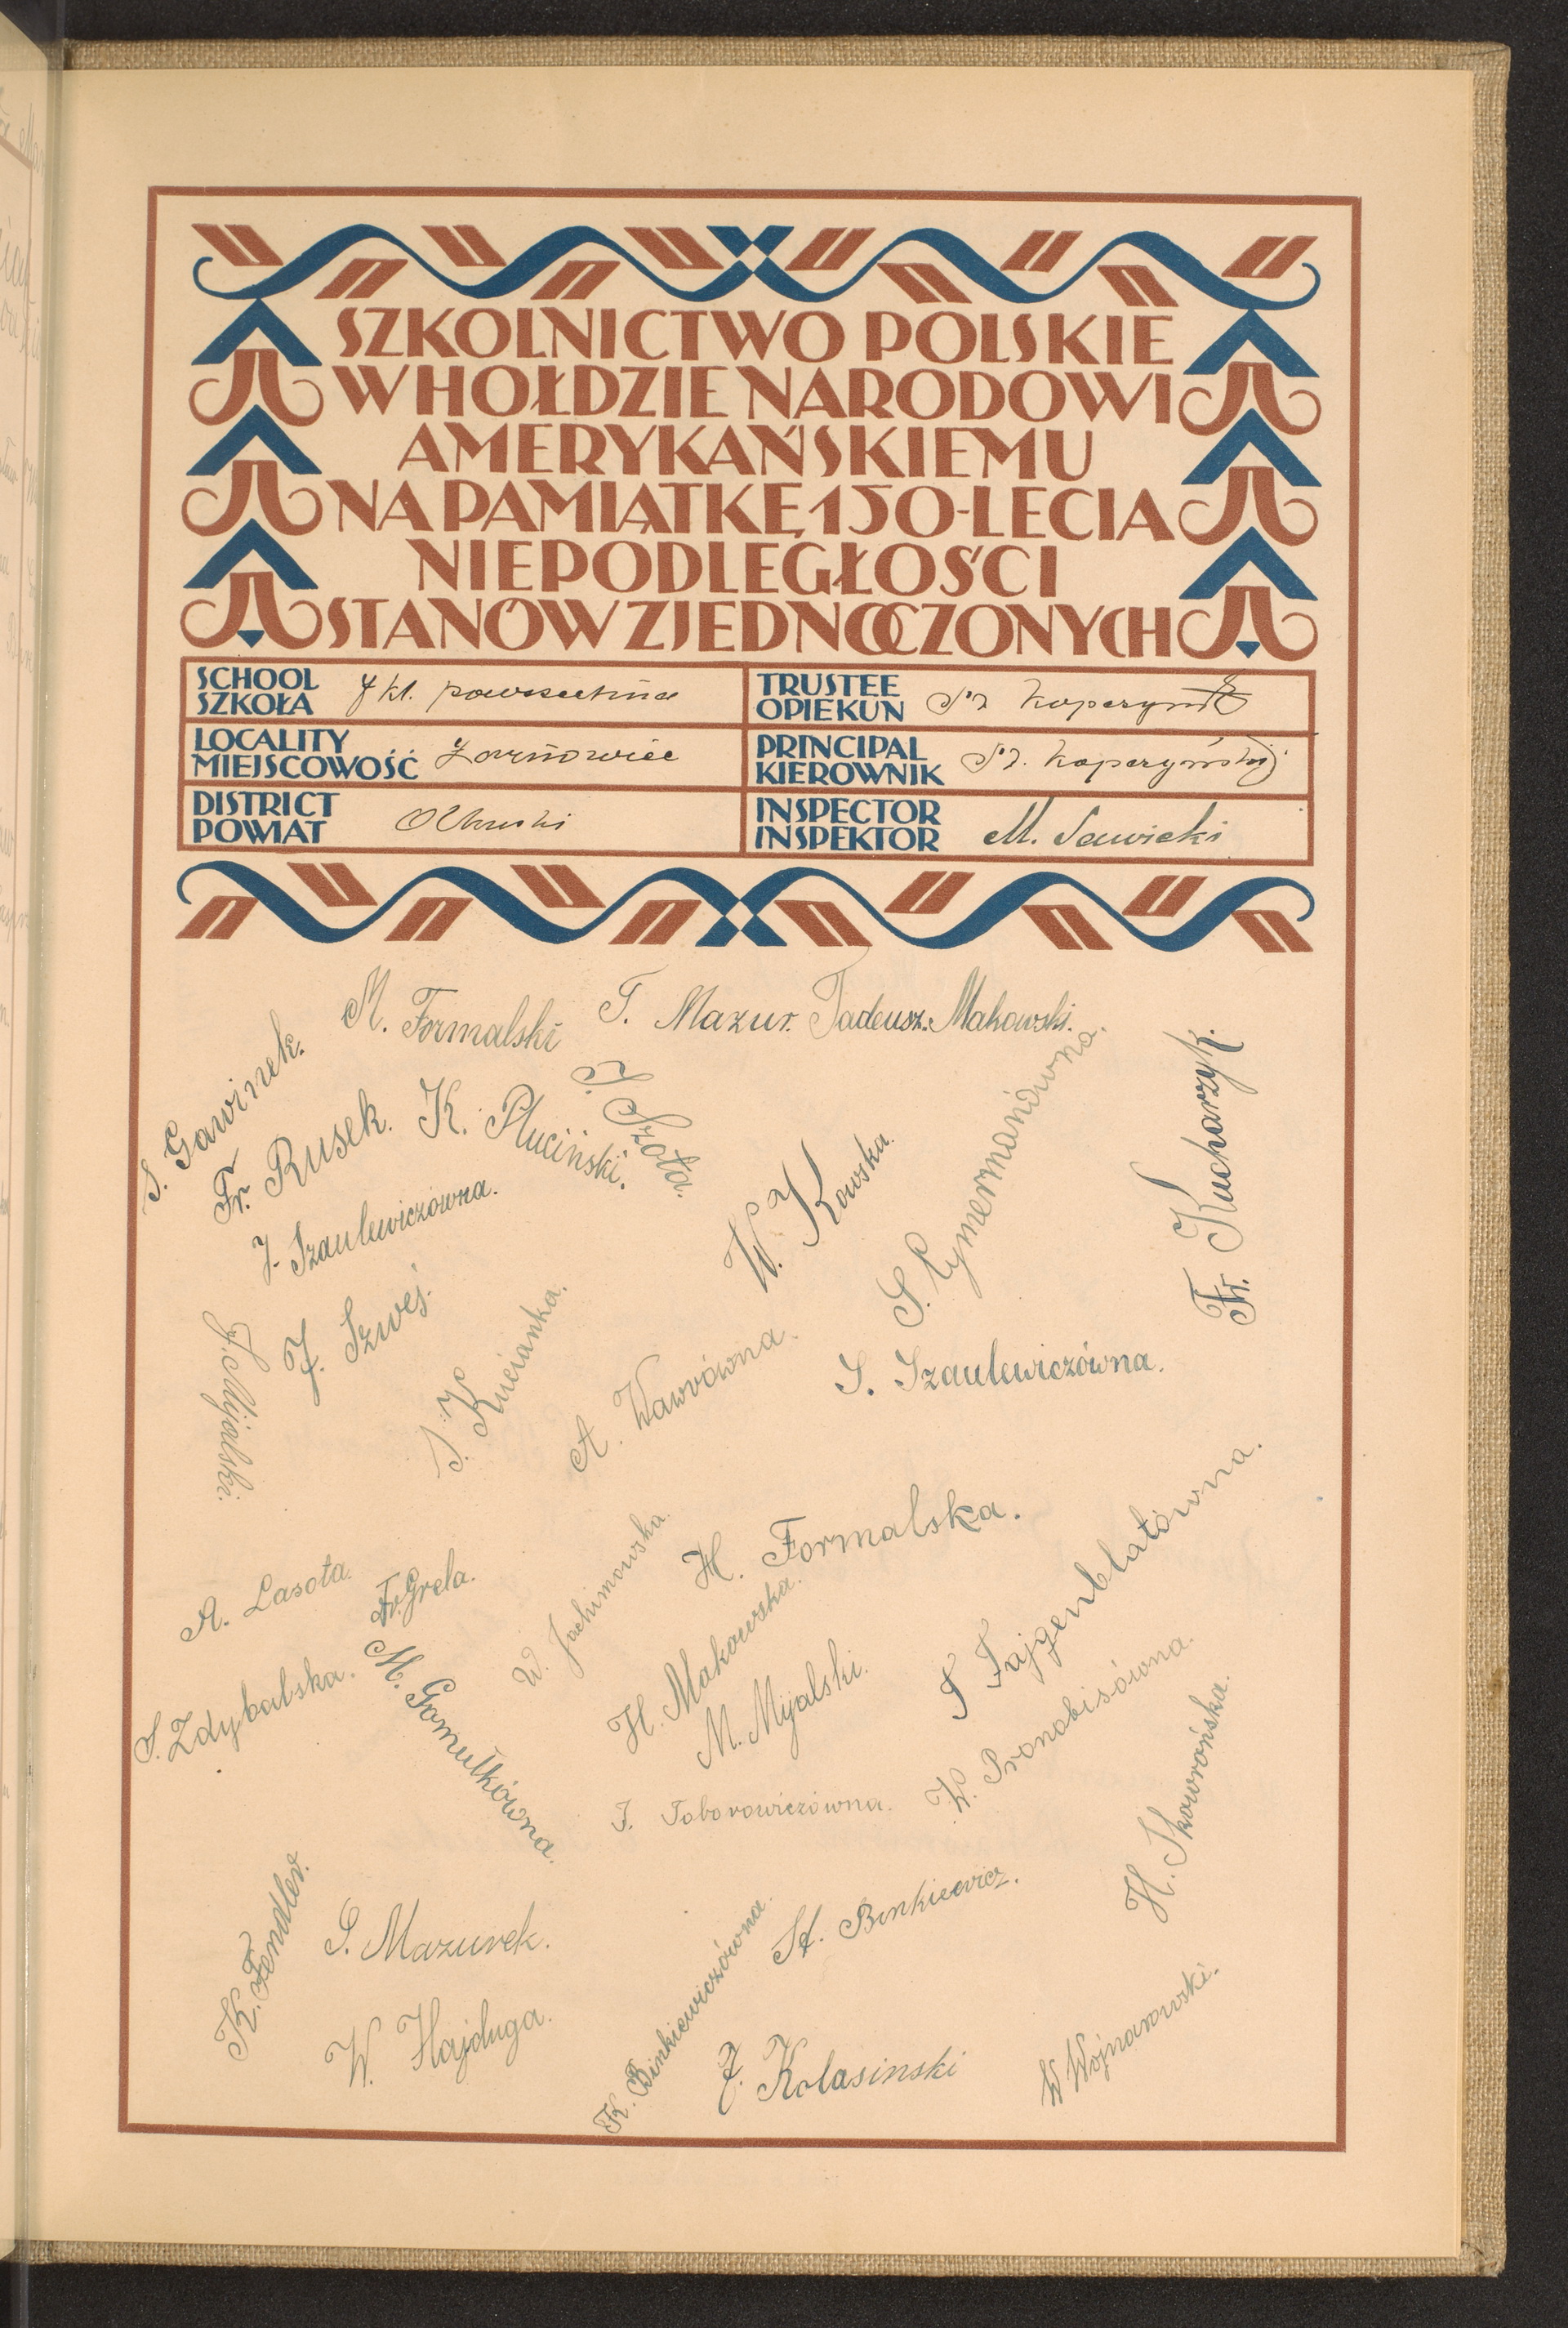 SZKOLNICTWO POLSKIE
W HOŁDZIE NARODOWI
AMERYKAŃSKIEMU
NA PAMIĄTKĘ 150-LECIA
NIEPODLEGŁOŚCI
STANÓW ZJEDNOCZONYCH
SCHOOL
SZKOŁA 7 kl. powszechna
TRUSTEE
OPIEKUN
LOCALITY
MIEJSCOWOŚĆ Żarnowiec
PRINCIPAL
KIEROWNIK Koperzyński
DISTRICT
POWIAT Olkuski
INSPECTOR
INSPEKTOR M. Sawicki
M. Formalski
T. Mazur.
Tadeusz. Makowski.
S. Gawinek.
Fr. Rusek.
K. Pluciński.
J. Szota.
J. Szaulewiczówna.
W. Kowska.
S. Cymermanówna.
Fr. Kucharzyk.
J. Szwej.
J. Mijalski.
S. Kucianka.
A. Wawrówna.
S. Szaulewiczówna.
A. Lasota.
Fr. Grela.
W. Jachimowska.
H. Formalska.
S. Zdybalska.
M. Gomułkówna.
H. Makowska.
M. Mijalski.
F. Fajgenblatówna.
W. Pronobisówna.
H. Skowrońska.
J. Toborowiczówna.
K. Fendler.
S. Mazurek.
St. Binkiewicz.
W. Hajduga.
K. Binkiewiczówna.
J. Kolasinski
W Wojnarowski.